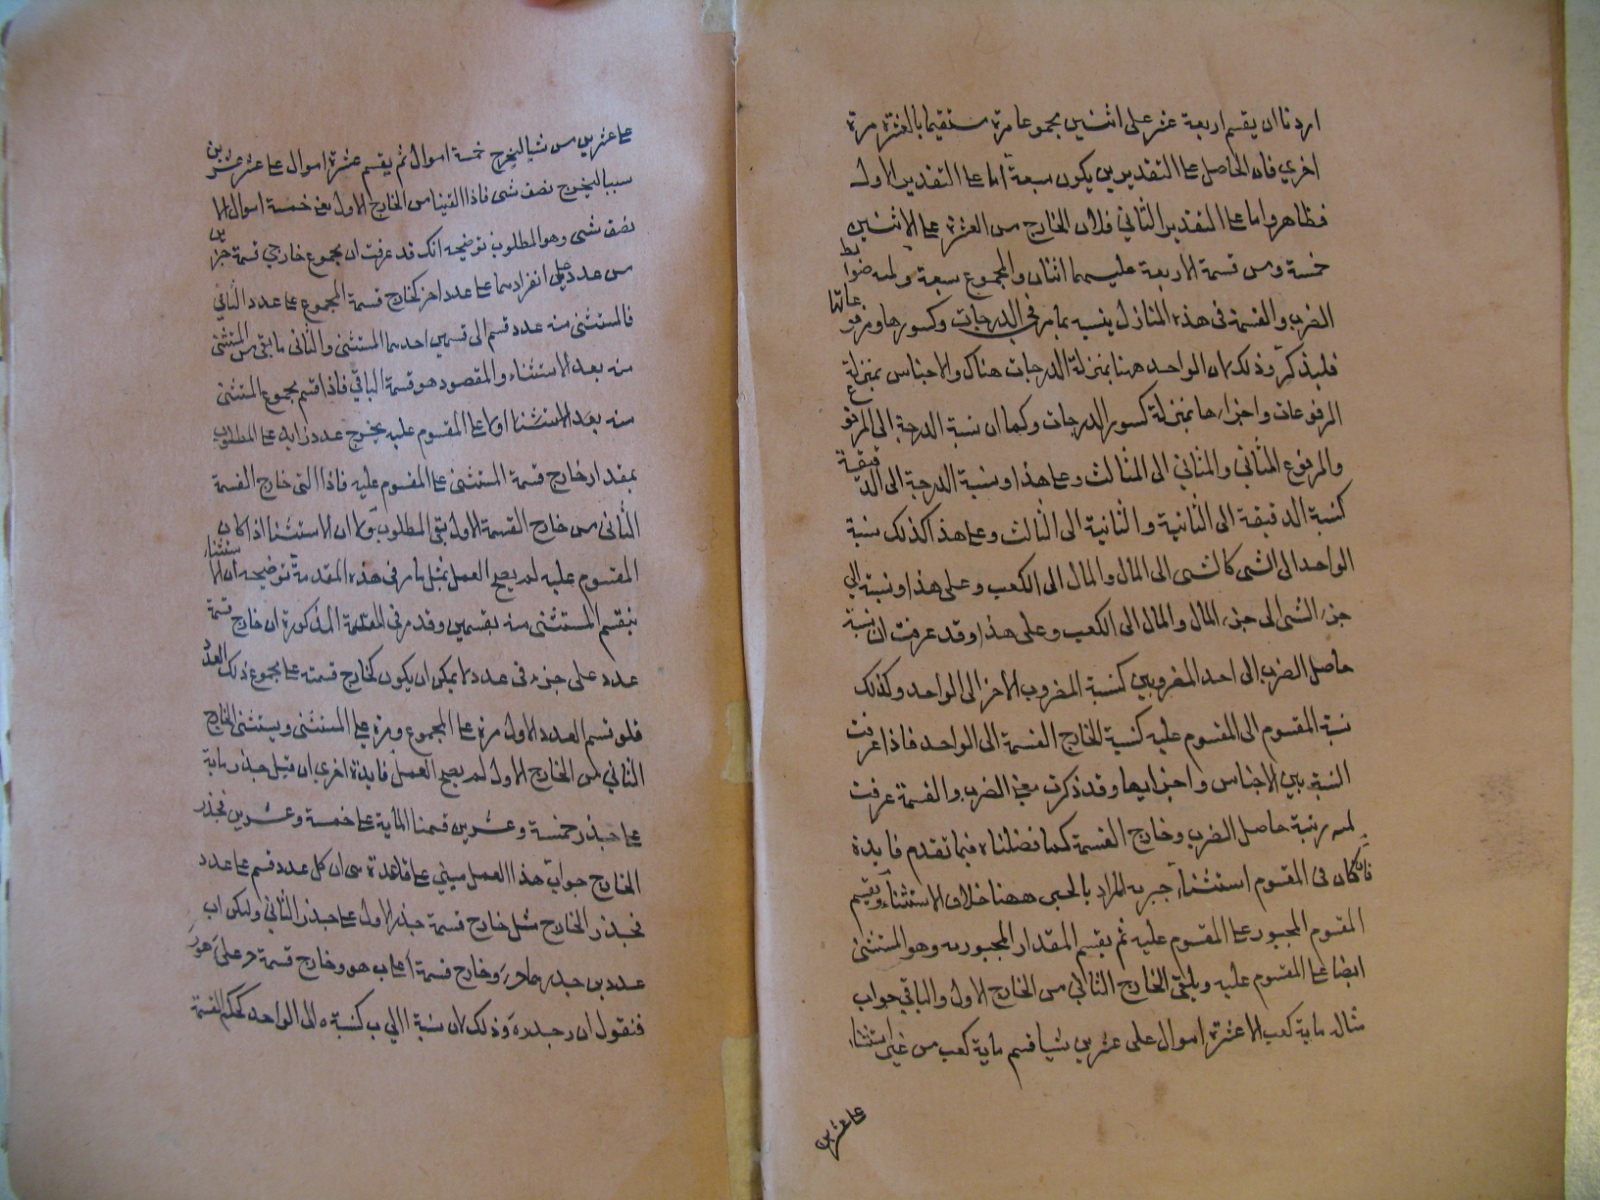 اردنا ان يقسم اربعة عشر على اثنين مجموعا مرة ستقيما بالعشرة مرة
اخري فان الحاصل على التقديرين يكون سبعة اما على التقدير الاول
فظاهر واما على التقدير الثاني فلان الخارج من العشرة على الاثنين
خمسة ومن قسمة الاربعة عليهما اثنان والمجموع سبعة وله ضوابط
الضرب والقسمة فى هذه المنازل ينبه بما مر في الدرجات وكسورها ومرفوعاتها
فليذكر وذلك لان الواحد ههنا بمنزلة الدرجات هناك والاجناس بمنزلة
المرفوعات واجزاءها بمنزلة كسور الدرجات وكما ان نسبة الدرجة الى المرفوع
والمرفوع الى المثاني والمثاني الى المثالث وعلى هذا ونسبة الدرجة الى الدقيقة
كنسبة الدقيقة الى الثانية والثانية الى الثالث وعلى هذا كذلك نسبة
الواحد الى الشى كالشى الى المال والمال الى الكعب وعلى هذا ونسبة الى
جزء الشى الى جزء المال والمال الى الكعب وعلى هذا وقد عرفت ان نسبة
حاصل الضرب الى احد المضروبين كنسبة المضروب الاخر الى الواحد وكذلك
نسبة المقسوم الى المقسوم عليه كنسبة الخارج القسمة الى الواحد فاذا عرفت
النسبة بين الاجناس واجزايها وقد ذكرت معنى الضرب والقسمة عرفت
لمه رتبة حاصل الضرب وخارج القسمة كما فضلناه فيما تقدم فايدة
فان كان فى المقسوم استثناء جبر به المراد بالجبر ههنا خلاف الاستثناء ويقسم
المقسوم المجبور على المقسوم عليه ثم يقسم المقدار المجبور به وهو المستثنى
ايضا على المقسوم عليه ويلقى الخارج الثانى من الخارج الاول والباقي جواب
مثاله ماية كعب الا عشرة اموال على عشرين شيا قسم ماية كعب من غير استثناء
على عشرين
على عشرين من شيا ليخرج خمسة اموال ثم يقسم عشرة اموال على عشرين
شيا ليخرج نصف شى فاذا القينا من الخارج الاول يعنى خمسة اموال الا
نصف شى وهو المطلوب توضيحه انك قد عرفت ان مجموع خارجي قسمة جزئين
من عدد على انفرادهما على عدد اخر كخارج قسمة المجموع على عدد الثاني
فالمستثنى منه عدد قسم الى قسمين احدهما المستثنى والثانى ما بقى من المستثنى
منه بعد الاستثناء والمقصود هو قسمة الباقي فاذا قسم مجموع المستثنى
منه بعد الاستثنا اولا على المقسوم عليه يخرج عدد زايد على المطلوب
بمقدار خارج قسمة المستثنى على المقسوم عليه فاذا القى خارج القسمة
الثانى من خارج القسمة الاول بقى المطلوب ولان الاستثنا اذا كان
المقسوم عليه لم يصح العمل بمثل ما مر فى هذه المقدمة توضيحه ان الاستثناء
ينقسم المستثنى منه بقسمين وقد مر فى المقدمة المذكورة ان خارج قسمة
عدد على جزء فى عدد لا يمكن ان يكون كخارج قسمته على مجموع ذلك العدد
فلو قسم العدد الاول مرة على المجموع ومرة على المستثنى ويستثنى الخارج
الثاني من الخارج الاول لم يصح العمل فايدة اخري ان قيل جذر ماية
على جذر خمسة وعشرين قسمنا الماية على خمسة وعشرين فجذر
الخارج جواب هذا العمل مبني على قاعدة هى ان كل عدد قسم على عدد
فجذر الخارج مثل خارج قسمة جذر الاول على جذر الثاني وليكن اب
عددين جذرهما حر وخارج قسمة ا على ب هو وخارج قسمة ح على
فنقول ان ر جذر ه وذلك لان نسبة ا الى ب كنسبة ه الى الواحد كحكم القسمة